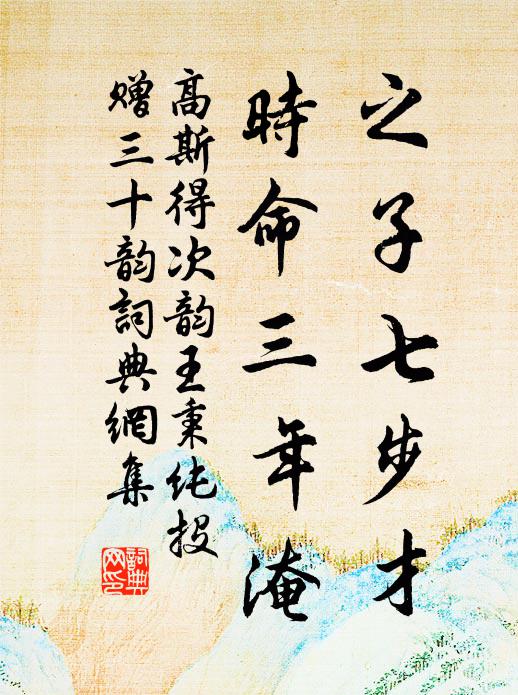 之子七步才
時命三年淹
高斯得次韵王秉纯投
赠三十韵詞典網集
詞典
网印